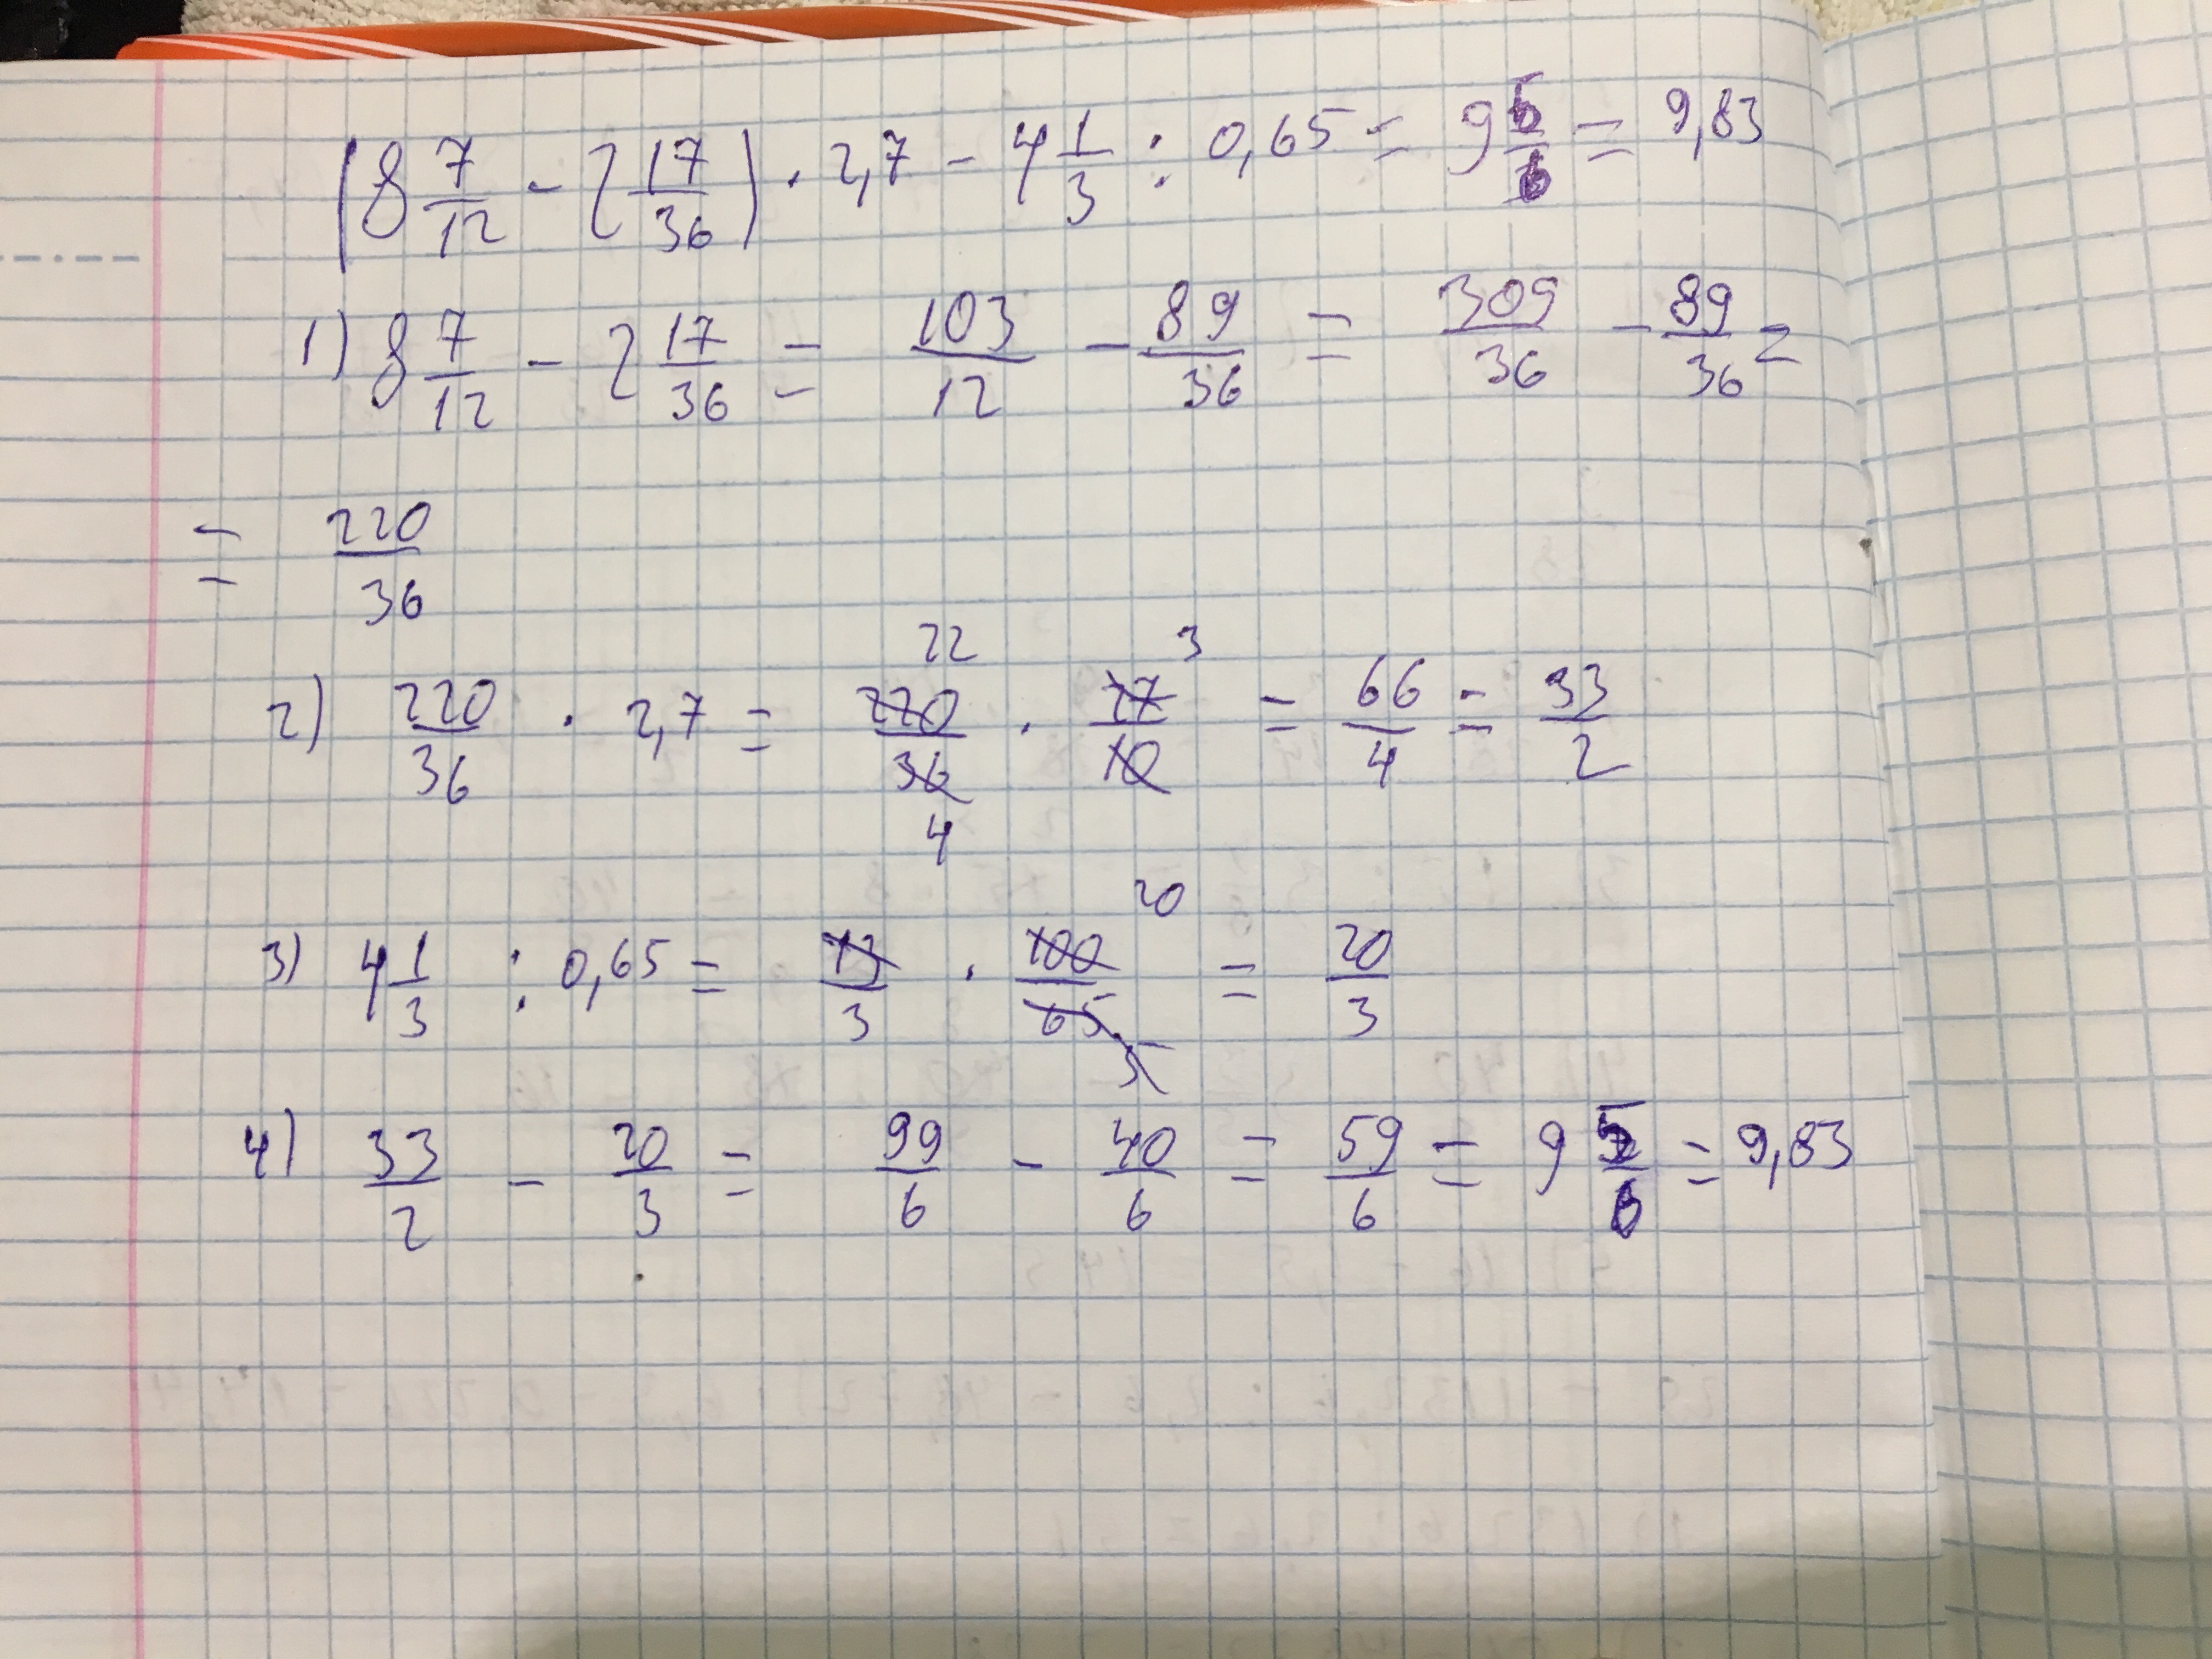 (8 7/12 - 2 17/36) · 2,7 - 4 1/3 : 0,65 = 9 5/6 = 9,83
1) 8 7/12 - 2 17/36 = 103/12 - 89/36 = 309/36 - 89/36 =
= 220/36
2) 220/36 · 2,7 = 220/36 · 27/10 = 66/4 = 33/2
22 3
4
3) 4 1/3 : 0,65 = 13/3 · 100/65 = 20/3
20
5
4) 33/2 - 20/3 = 99/6 - 40/6 = 59/6 = 9 5/6 = 9,83